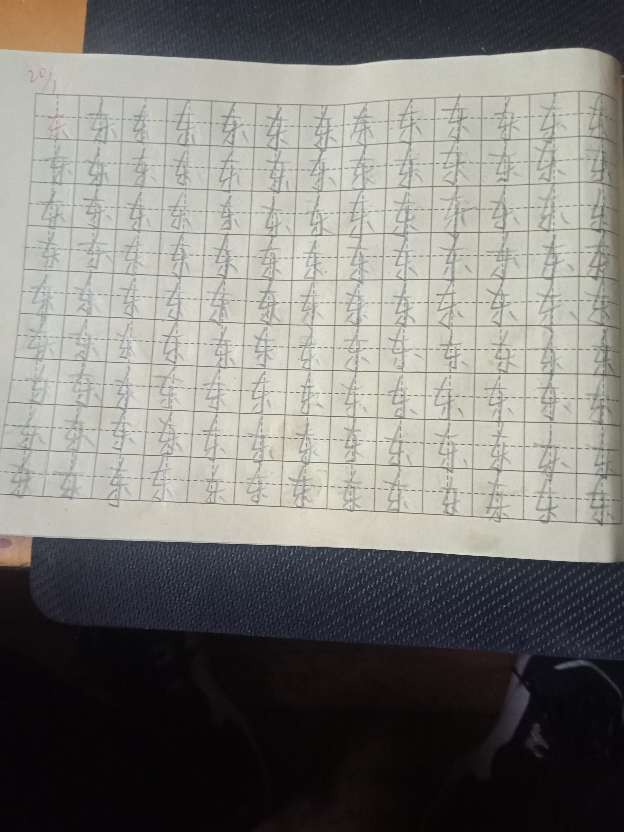 20/1
东东东东东东东东东东东东东
东东东东东东东东东东东东东
东东东东东东东东东东东东东
东东东东东东东东东东东东东
东东东东东东东东东东东东东
东东东东东东东东东东东东东
东东东东东东东东东东东东东
东东东东东东东东东东东东东
东东东东东东东东东东东东东